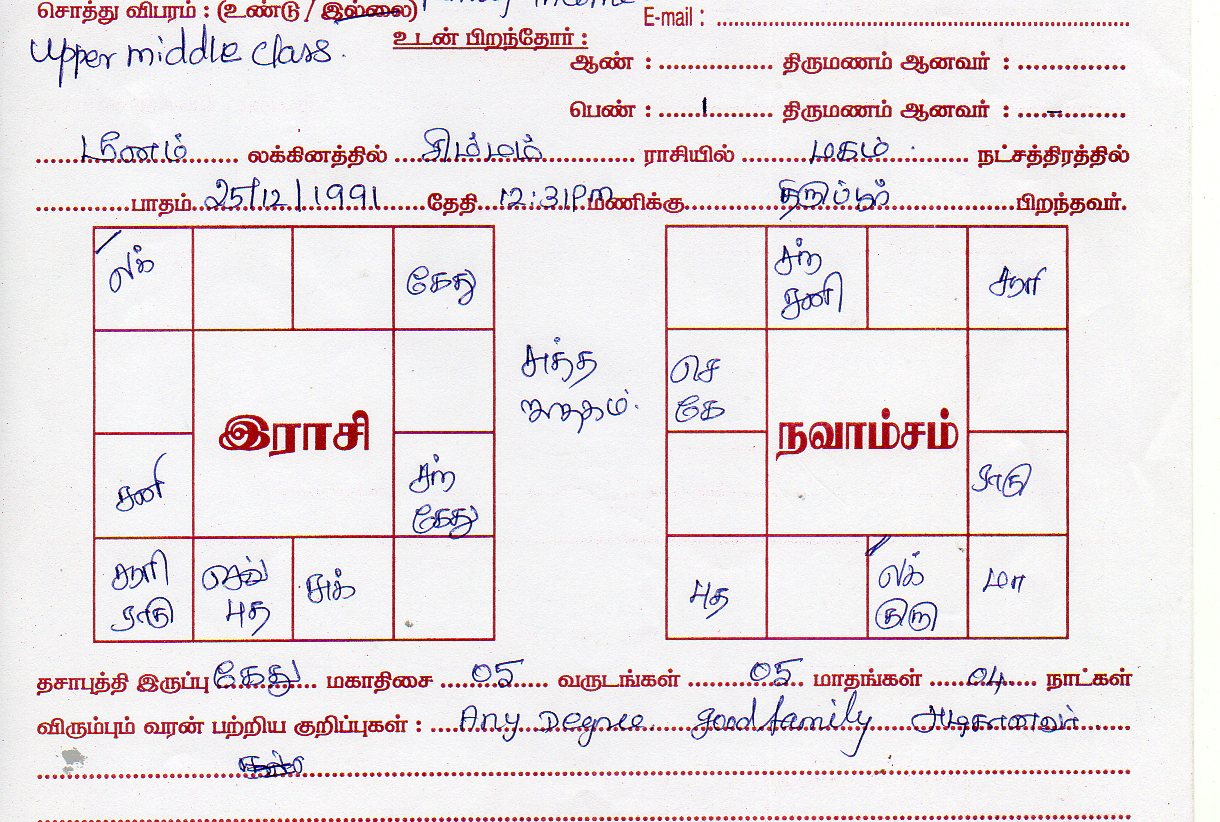 சொத்து விபரம் : (உண்டு / இல்லை)
E-mail :
Upper middle class.
உடன் பிறந்தோர் :
ஆண் : திருமணம் ஆனவர் :
பெண் : 1 திருமணம் ஆனவர் : -
மீனம் லக்கினத்தில் சிம்மம் ராசியில் மகம் நட்சத்திரத்தில்
பாதம் 25/12/1991 தேதி 12:31 PM மணிக்கு திருப்பூர் பிறந்தவர்.
லக்
கேது
சனி
இராசி
சந்
கேது
சூரி
ராகு
செவ்
புத
சுக்
சுத்த
ஜாதகம்.
சந்
சனி
சூரி
செ
கே
நவாம்சம்
ராகு
புத
லக்
குரு
மா
தசாபுத்தி இருப்பு கேது மகாதிசை 05 வருடங்கள் 05 மாதங்கள் 04 நாட்கள்
விரும்பும் வரன் பற்றிய குறிப்புகள் : Any Degree good family